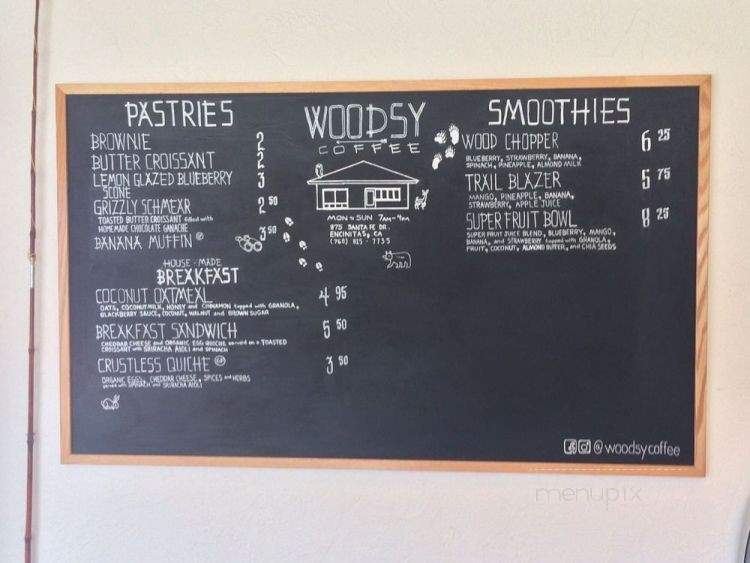 PASTRIES
BROWNIE 2
BUTTER CROISSANT 2
LEMON GLAZED BLUEBERRY 3
SCONE
GRIZZLY SCHMEAR 2 50
TOASTED BUTTER CROISSANT filled with
HOMEMADE CHOCOLATE GANACHE
BANANA MUFFIN 3 50
HOUSE-MADE
BREAKFAST
COCONUT OATMEAL 4 95
OATS, COCONUT MILK, HONEY and CINNAMON topped with GRANOLA,
BLACKBERRY SAUCE, COCONUT, WALNUT and BROWN SUGAR
BREAKFAST SANDWICH 5 50
CHEDDAR CHEESE and ORGANIC EGG QUICHE served on a TOASTED
CROISSANT with SRIRACHA AIOLI and SPINACH
CRUSTLESS QUICHE 3 50
ORGANIC EGGS, CHEDDAR CHEESE, SPICES and HERBS
served with SPINACH and SRIRACHA AIOLI
WOODSY
COFFEE
MON-SUN 7am-4pm
875 SANTA FE DR.
ENCINITAS, CA
(760) 815-7735
SMOOTHIES
WOOD CHOPPER 6 25
BLUEBERRY, STRAWBERRY, BANANA,
SPINACH, PINEAPPLE, ALMOND MILK
TRAIL BLAZER 5 75
MANGO, PINEAPPLE, BANANA,
STRAWBERRY, APPLE JUICE
SUPER FRUIT BOWL 8 25
SUPER FRUIT JUICE BLEND, BLUEBERRY, MANGO,
BANANA, and STRAWBERRY topped with GRANOLA,
FRUIT, COCONUT, ALMOND BUTTER, and CHIA SEEDS
@woodsycoffee
menupix